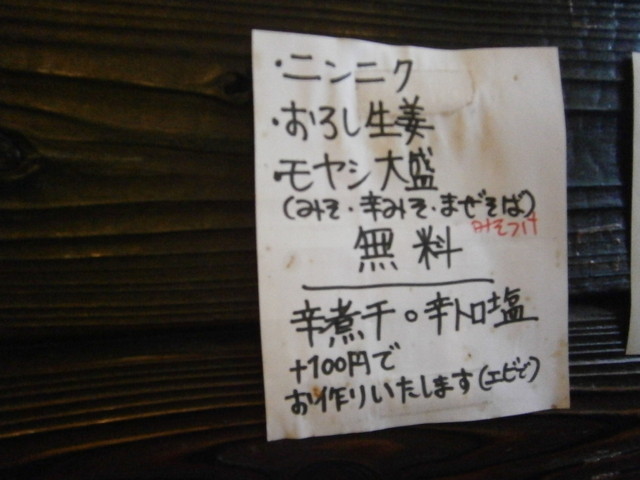 ・ニンニク
・おろし生姜
・モヤシ大盛
(みそ・辛みそ・まぜそば)
みそつけ
無料
辛煮干。辛トロ塩
+100円で
お作りいたします(エビで)